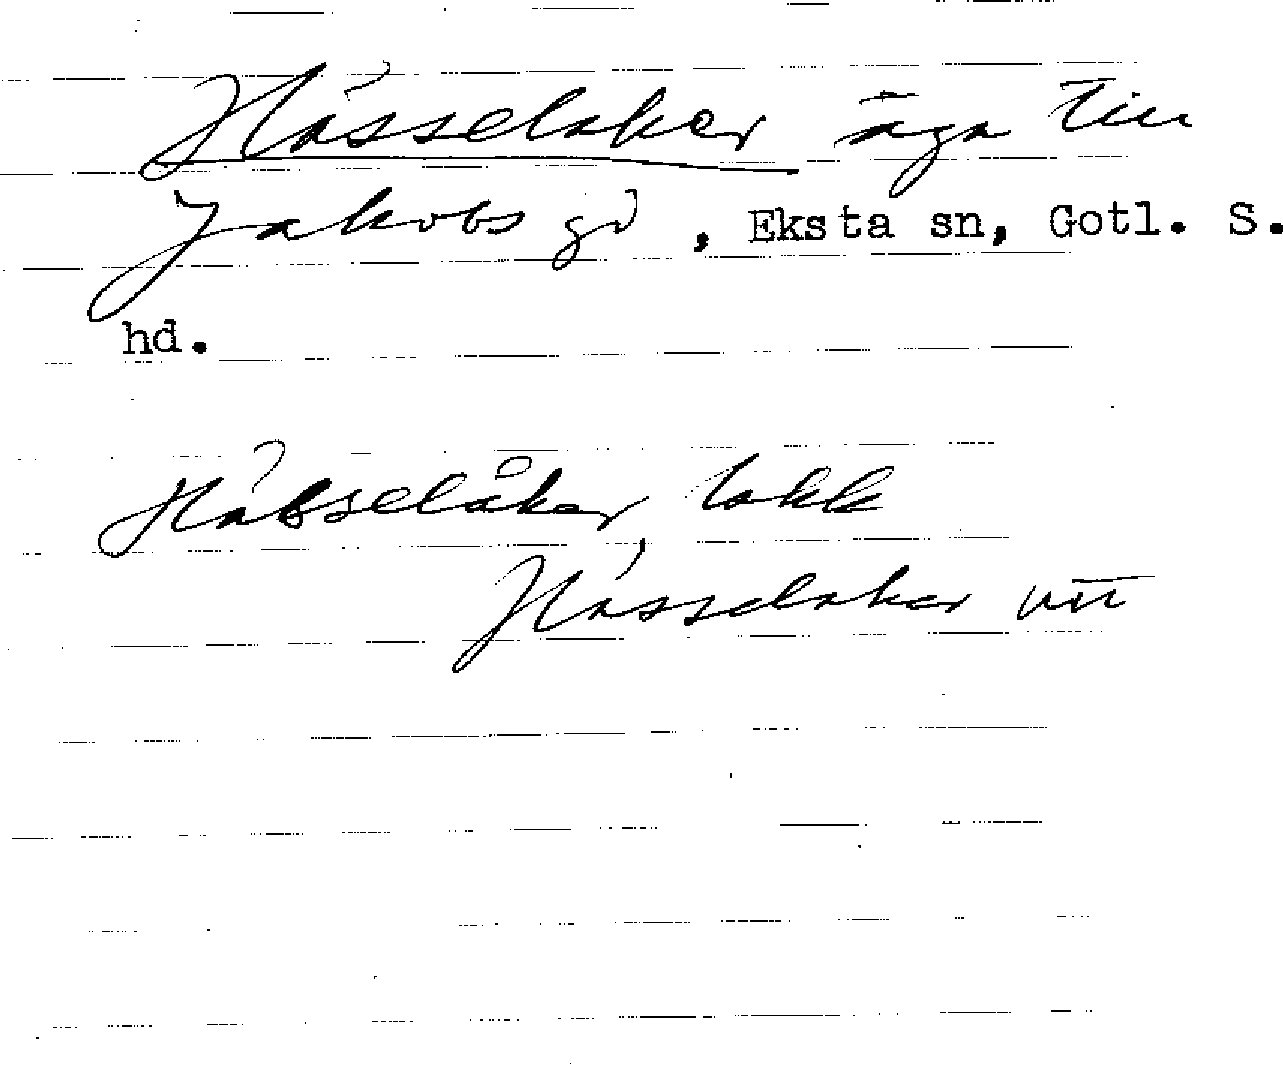 Hässelaker äga till
Jakobs gd, Eksta sn, Gotl. S.
hd.
Hässelåker, lakk
Hässelaker utt